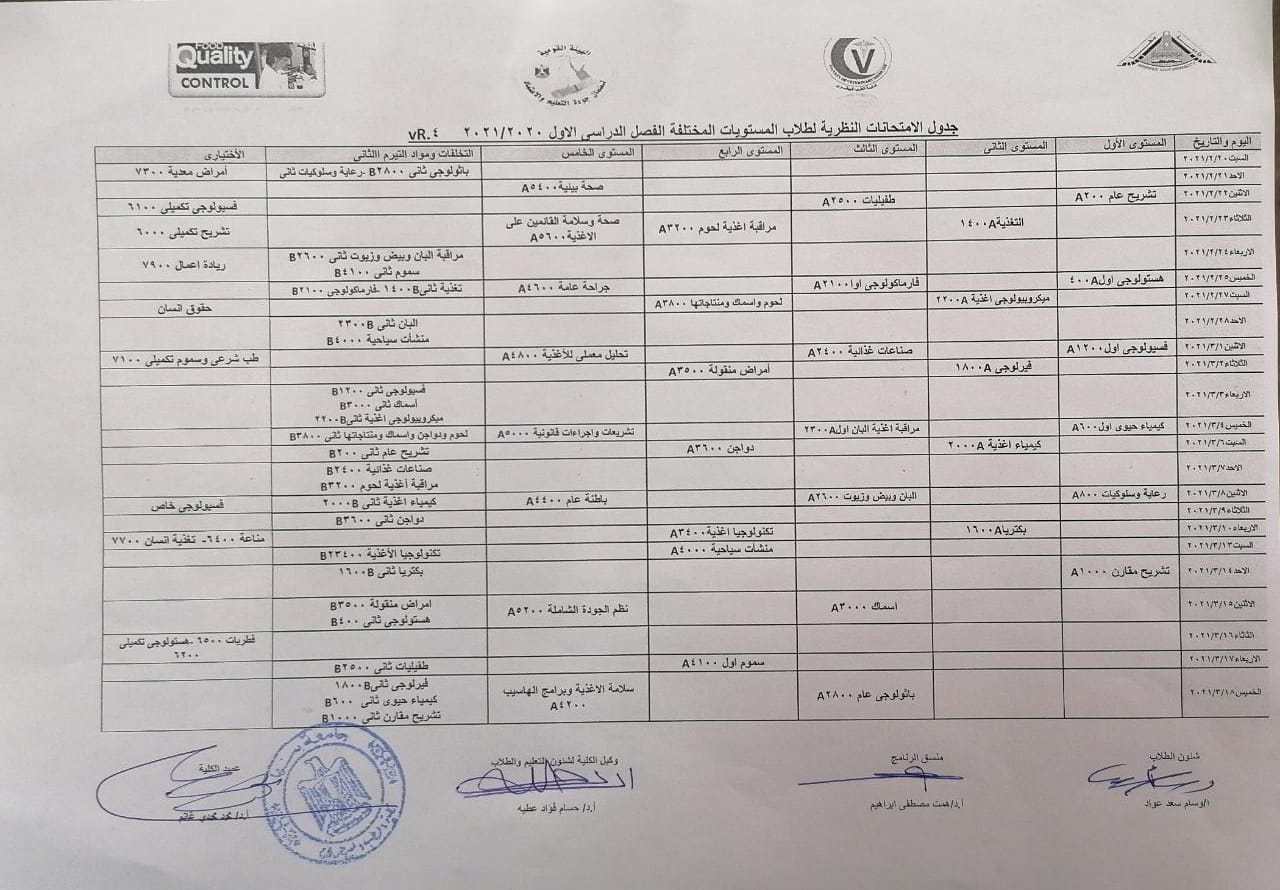 FOOD
Quality
CONTROL
الهيئة القومية
لضمان جودة التعليم والاعتماد
V
جدول الامتحانات النظرية لطلاب المستويات المختلفة الفصل الدراسى الاول ٢٠٢١/٢٠٢٠ vR.٤
اليوم والتاريخ المستوى الأول المستوى الثانى المستوى الثالث المستوى الرابع المستوى الخامس التخلفات ومواد التيرم االثانى الأختيارى
السبت ٢٠٢١/٢/٢٠ باثولوجى ثانى B٢٨٠٠ -رعاية وسلوكيات ثانى أمراض معدية ٧٣٠٠
الاحد ٢٠٢١/٢/٢١ صحة بيئية A٥٤٠٠
الاثنين ٢٠٢١/٢/٢٢ تشريح عام A٢٠٠ طفيليات A٢٥٠٠ فسيولوجى تكميلى ٦١٠٠
الثلاثاء ٢٠٢١/٢/٢٣ التغذية A١٤٠٠ مراقبة اغذية لحوم A٣٢٠٠ صحة وسلامة القائمين على
الاغذية A٥٦٠٠ تشريح تكميلى ٦٠٠٠
الاربعاء ٢٠٢١/٢/٢٤ مراقبة البان وبيض وزيوت ثانى B٢٦٠٠
سموم ثانى B٤١٠٠ ريادة اعمال ٧٩٠٠
الخميس ٢٠٢١/٢/٢٥ هستولوجى اول A٤٠٠ فارماكولوجى اوا A٢١٠٠ جراحة عامة A٤٦٠٠ تغذية ثانى B١٤٠٠ -فارماكولوجى B٢١٠٠
السبت ٢٠٢١/٢/٢٧ ميكروبيولوجى اغذية A٢٢٠٠ لحوم واسماك ومنتاجاتها A٣٨٠٠ حقوق انسان
الاحد ٢٠٢١/٢/٢٨ البان ثانى B٢٣٠٠
منشأت سياحية B٤٠٠٠
الاثنين ٢٠٢١/٣/١ فسيولوجى اول A١٢٠٠ صناعات غذائية A٢٤٠٠ تحليل معملى للأغذية A٤٨٠٠ طب شرعى وسموم تكميلى ٧١٠٠
الثلاثاء ٢٠٢١/٣/٢ فيرلوجى A١٨٠٠ أمراض منقولة A٣٥٠٠
الاربعاء ٢٠٢١/٣/٣ فسيولوجى ثانى B١٢٠٠
أسماك ثانى B٣٠٠٠
ميكروبيولوجى اغذية ثانى B٢٢٠٠
الخميس ٢٠٢١/٣/٤ كيمياء حيوى اول A٦٠٠ مراقبة اغذية البان اول A٢٣٠٠ تشريعات واجراءات قانونية A٥٠٠٠ لحوم ودواجن واسماك ومنتاجاتها ثانى B٣٨٠٠
السبت ٢٠٢١/٣/٦ كيمياء اغذية A٢٠٠٠ دواجن A٣٦٠٠ تشريح عام ثانى B٢٠٠
الاحد ٢٠٢١/٣/٧ صناعات غذائية B٢٤٠٠
مراقبة أغذية لحوم B٣٢٠٠
الاثنين ٢٠٢١/٣/٨ رعاية وسلوكيات A٨٠٠ البان وبيض وزيوت A٢٦٠٠ باطنة عام A٤٤٠٠ كيمياء اغذية ثانى B٢٠٠٠ فسيولوجى خاص
الثلاثاء ٢٠٢١/٣/٩ دواجن ثانى B٣٦٠٠
الاربعاء ٢٠٢١/٣/١٠ بكتريا A١٦٠٠ تكنولوجيا اغذية A٣٤٠٠ مناعة ٦٤٠٠- تغذية انسان ٧٧٠٠
السبت ٢٠٢١/٣/١٣ منشأت سياحية A٤٠٠٠ تكنولوجيا الأغذية B٢٣٤٠٠
الاحد ٢٠٢١/٣/١٤ تشريح مقارن A١٠٠٠ بكتريا ثانى B١٦٠٠
الاثنين ٢٠٢١/٣/١٥ اسماك A٣٠٠٠ نظم الجودة الشاملة A٥٢٠٠ امراض منقولة B٣٥٠٠
هستولوجى ثانى B٤٠٠
الثلثاء ٢٠٢١/٣/١٦ فطريات ٦٥٠٠ -هستولوجى تكميلى
٦٢٠٠
الاربعاء ٢٠٢١/٣/١٧ سموم اول A٤١٠٠ طفيليات ثانى B٢٥٠٠
الخميس ٢٠٢١/٣/١٨ باثولوجى عام A٢٨٠٠ سلامة الاغذية وبرامج الهاسيب
A٤٢٠٠ فيرلوجى ثانى B١٨٠٠
كيمياء حيوى ثانى B٦٠٠
تشريح مقارن ثانى B١٠٠٠
شئون الطلاب منسق الرنامج وكيل الكلية لشئون التعليم والطلاب عميد الكلية
ا/وسام سعد عواد أ.د/ همت مصطفى ابراهيم أ.د/ حسام فؤاد عطيه أ.د/ محمد مجدي غانم